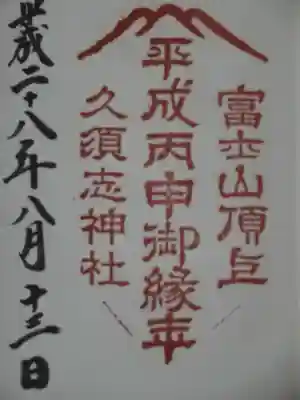 富士山頂上
平成丙申御縁年
久須志神社
平成二十八年八月十三日